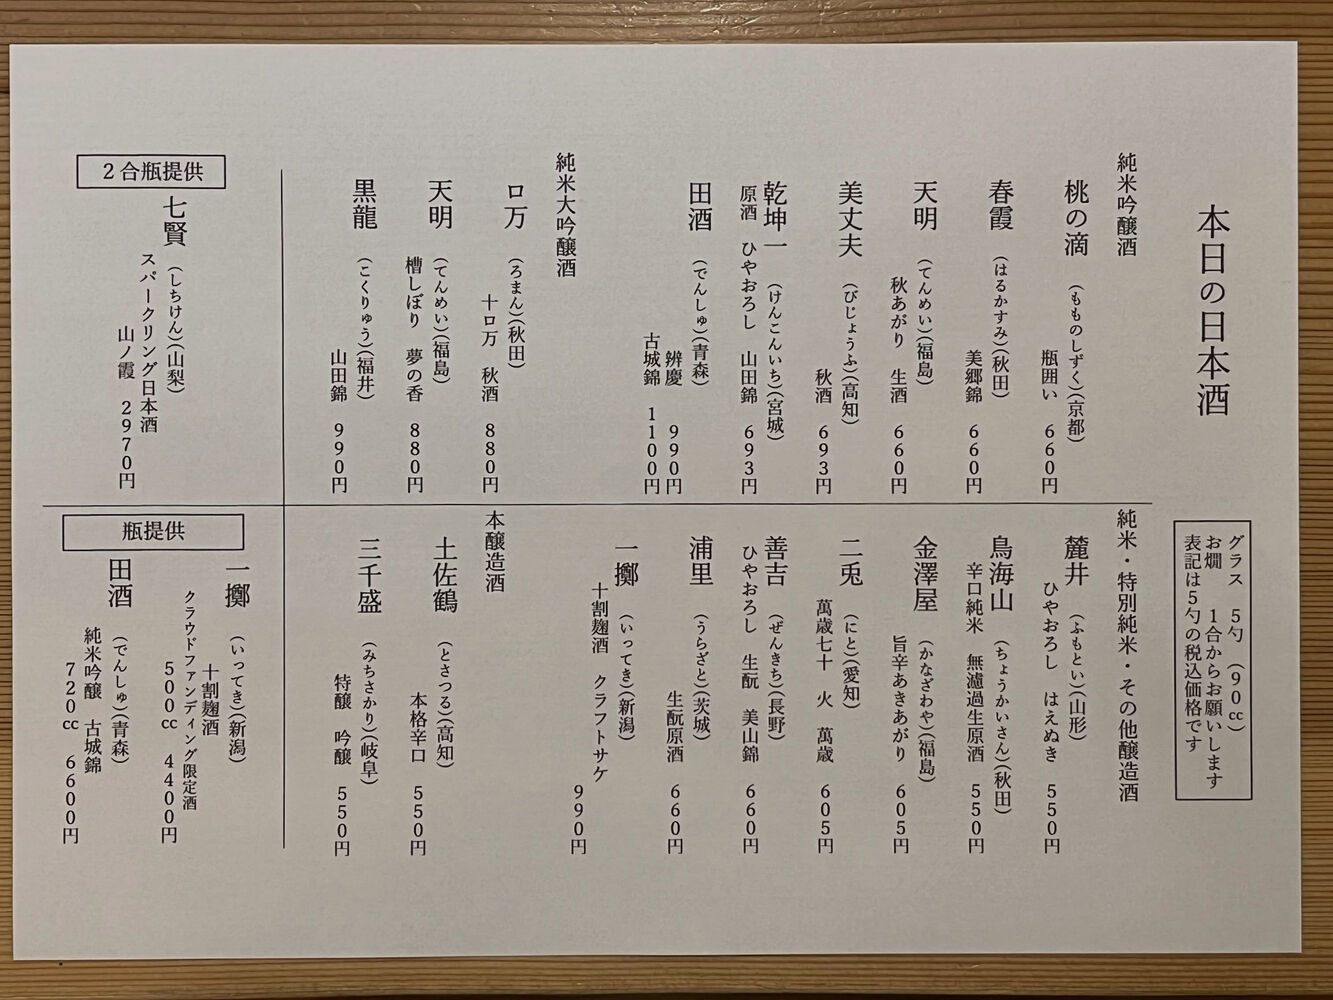 本日の日本酒
グラス　5勺　(90cc)
お燗　1合からお願いします
表記は5勺の税込価格です
純米吟醸酒
桃の滴　(もものしずく)(京都)
瓶囲い　660円
春霞　(はるかすみ)(秋田)
美郷錦　660円
天明　(てんめい)(福島)
秋あがり　生酒　660円
美丈夫　(びじょうふ)(高知)
秋酒　693円
乾坤一　(けんこんいち)(宮城)
原酒　ひやおろし　山田錦　693円
田酒　(でんしゅ)(青森)
辨慶　990円
古城錦　1100円
純米大吟醸酒
ロ万　(ろまん)(秋田)
十ロ万　秋酒　880円
天明　(てんめい)(福島)
槽しぼり　夢の香　880円
黒龍　(こくりゅう)(福井)
山田錦　990円
純米・特別純米・その他醸造酒
麓井　(ふもとい)(山形)
ひやおろし　はえぬき　550円
鳥海山　(ちょうかいさん)(秋田)
辛口純米　無濾過生原酒　550円
金澤屋　(かなざわや)(福島)
旨辛あきあがり　605円
二兎　(にと)(愛知)
萬歳七十　火　萬歳　605円
善吉　(ぜんきち)(長野)
ひやおろし　生酛　美山錦　660円
浦里　(うらざと)(茨城)
生酛原酒　660円
一擲　(いってき)(新潟)
十割麹酒　クラフトサケ
990円
本醸造酒
土佐鶴　(とさつる)(高知)
本格辛口　550円
三千盛　(みちさかり)(岐阜)
特醸　吟醸　550円
2合瓶提供
七賢　(しちけん)(山梨)
スパークリング日本酒
山ノ霞　2970円
瓶提供
一擲　(いってき)(新潟)
十割麹酒
クラウドファンディング限定酒
500cc　4400円
田酒　(でんしゅ)(青森)
純米吟醸　古城錦
720cc　6600円